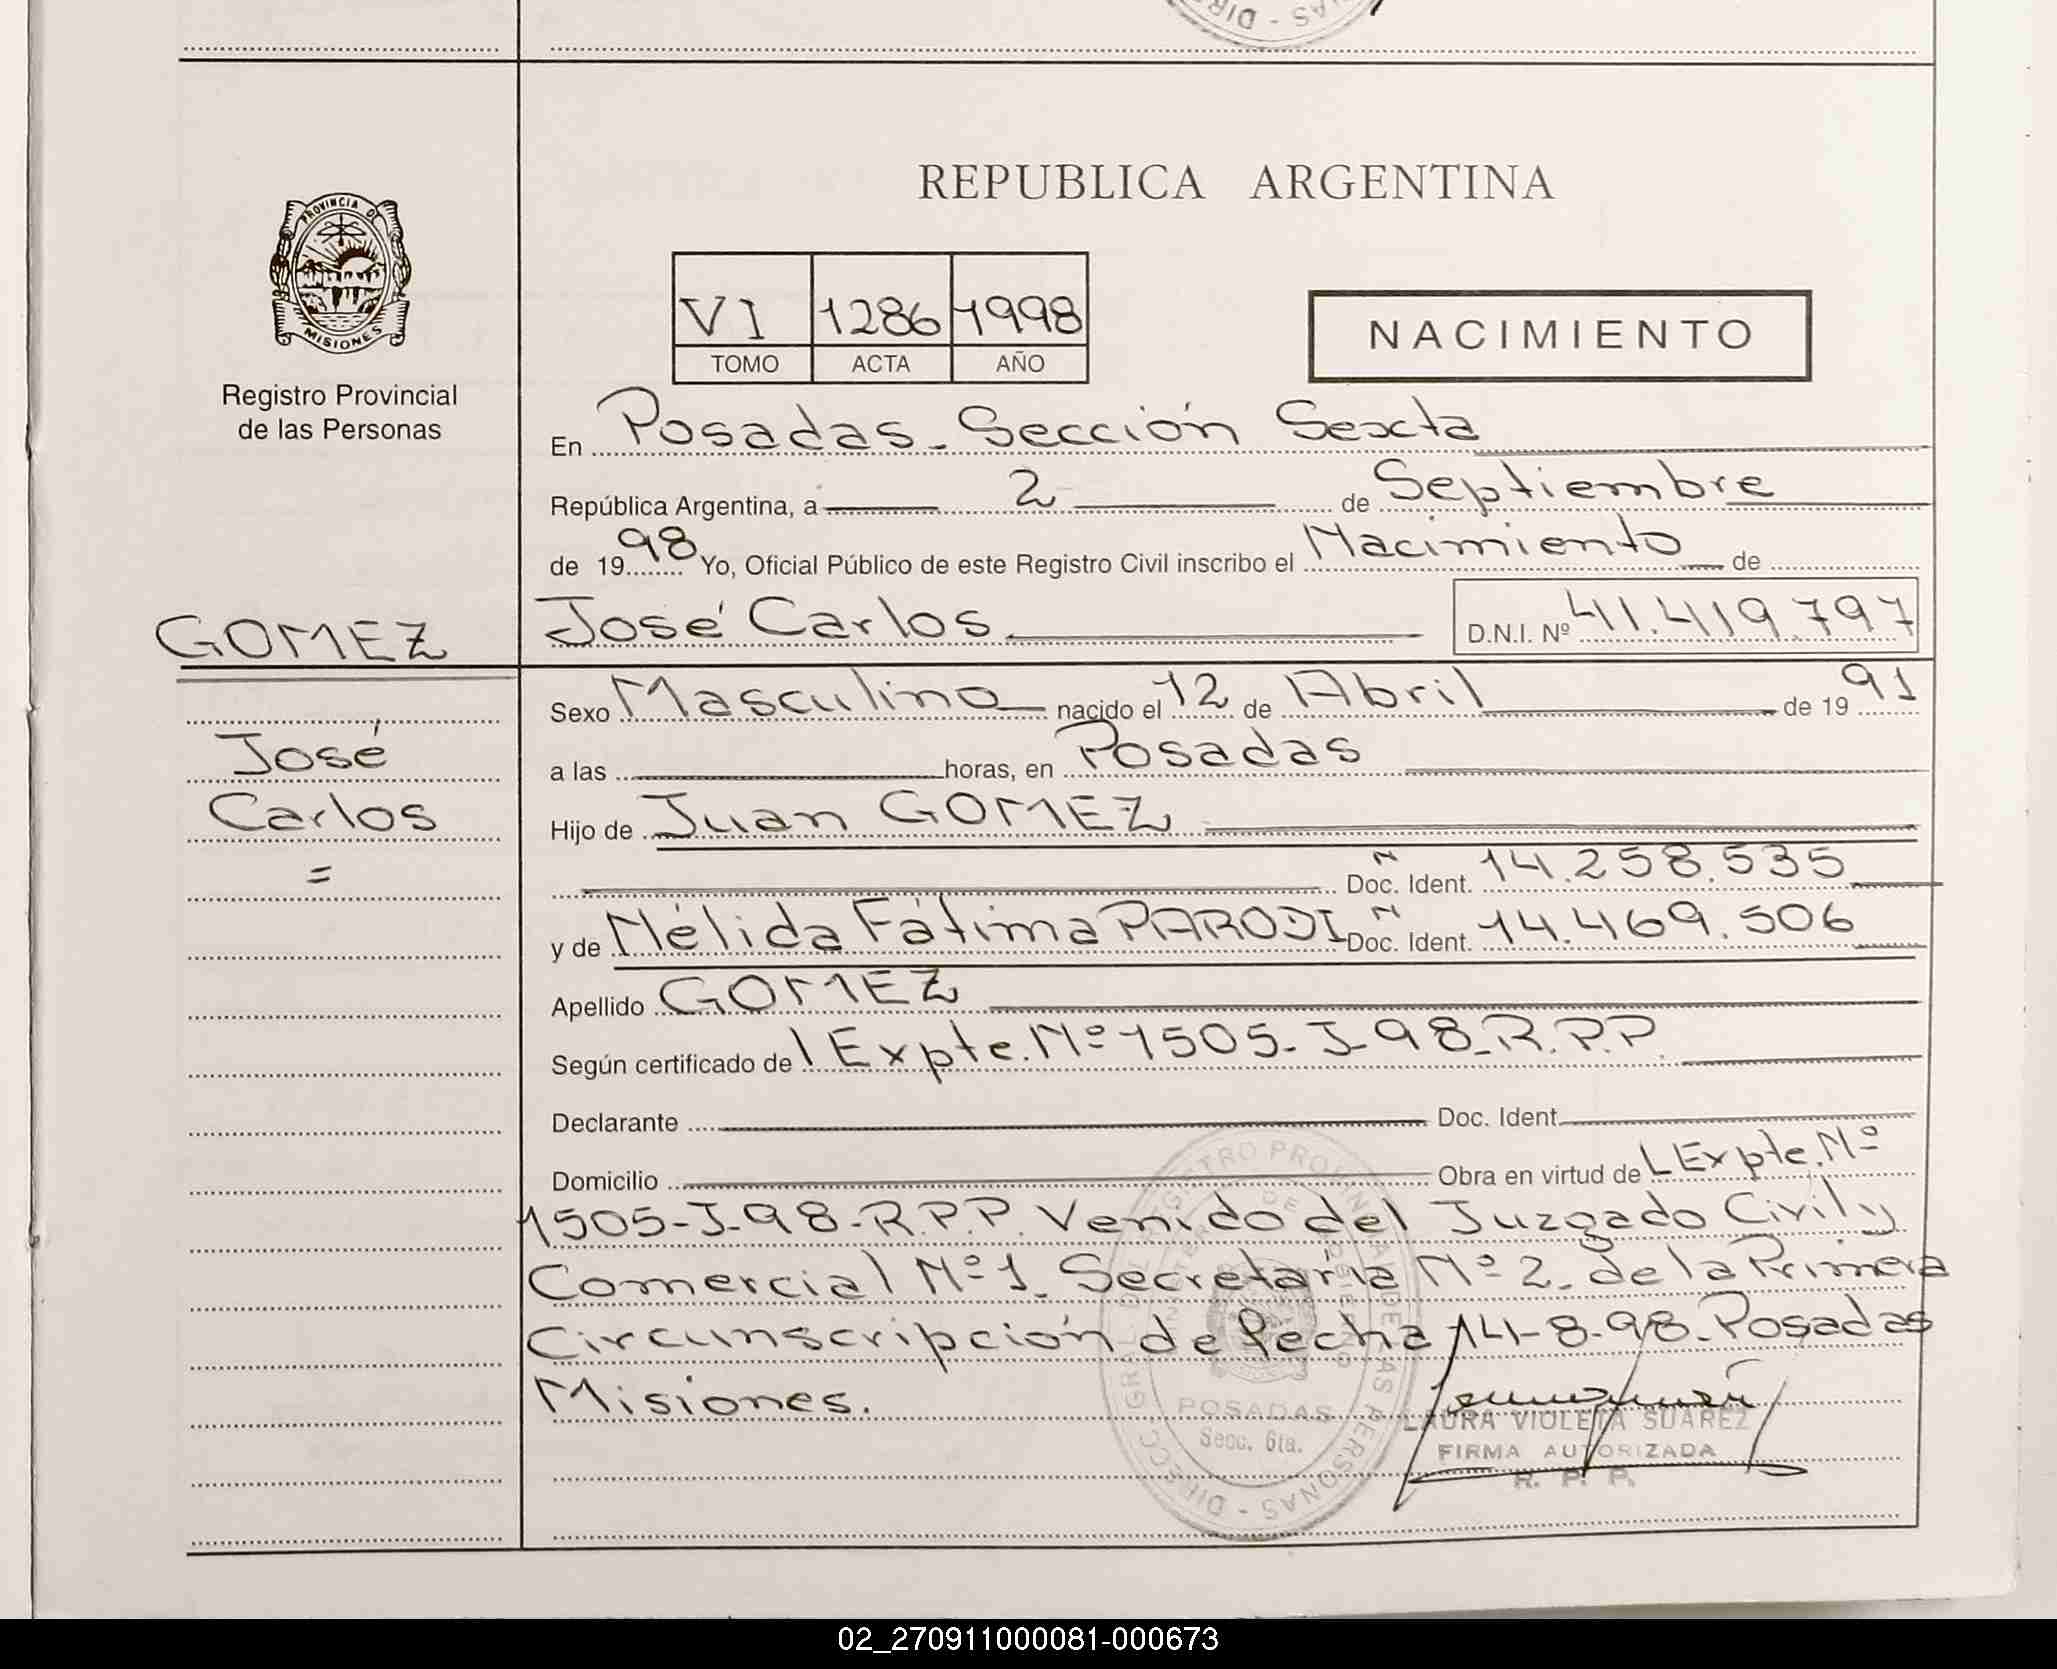 DIREC - NAS
REPUBLICA ARGENTINA
PROVINCIA DE
MISIONES
Registro Provincial
de las Personas
VI 1286 1998
TOMO ACTA AÑO
NACIMIENTO
En Posadas - Sección Sexta
República Argentina, a 2 de Septiembre
de 1998 Yo, Oficial Público de este Registro Civil inscribo el Nacimiento de
GOMEZ José Carlos D.N.I. Nº 41.419.797
Sexo Masculino nacido el 12 de Abril de 1991
José
a las horas, en Posadas
Carlos
Hijo de Juan GOMEZ
=
Doc. Ident. 14.258.535
y de Nélida Fátima PARODI Doc. Ident. 14.469.506
Apellido GOMEZ
Según certificado de l Expte. Nº 1505-J-98-R.P.P.
Declarante Doc. Ident.
Domicilio Obra en virtud de L Expte. Nº
1505-J-98-R.P.P. Venido del Juzgado Civil y
Comercial Nº 1. Secretaría Nº 2. de la Primera
Circunscripción de fecha 14-8-98. Posadas
Misiones.
DIRECC. GRAL. DEL REGISTRO PROVINCIAL DE LAS PERSONAS
POSADAS
Secc. 6ta.
LAURA VIOLETA SUAREZ
FIRMA AUTORIZADA
R. P. P.
02_270911000081-000673